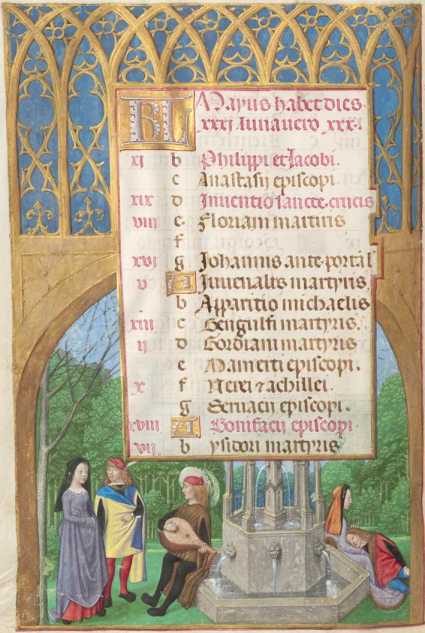 KL Mayus habet dies
xxxi. Luna vero xxx.
xi b Philippi et Jacobi.
c Anastasii episcopi.
xix d Inventio sancte crucis
viii e Floriani martiris
f
xvi g Johannis ante portal
v A Juvenalis martyris.
b Apparitio michaelis
xiii c Gengulfi martyris.
ii d Gordiani martyris
e Mamerti episcopi.
x f Nerei ⁊ achillei.
g Servacii episcopi.
xviii A Bonifacii episcopi.
vii b ysidori martyris